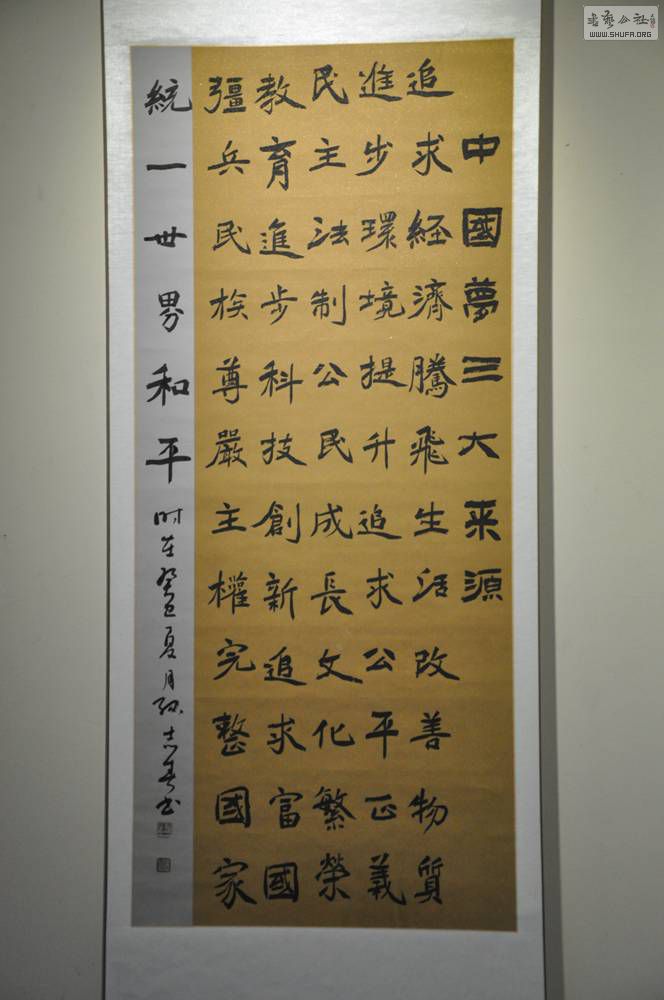 中國夢三大来源
追求經濟騰飛生活改善物質
進步環境提升追求公平正義
民主法制公民成長文化繁榮
教育進步科技創新追求富國
彊兵民族尊嚴主權完整國家
統一世界和平
時在癸巳夏月
書
書藝公社
WWW.SHUFA.ORG